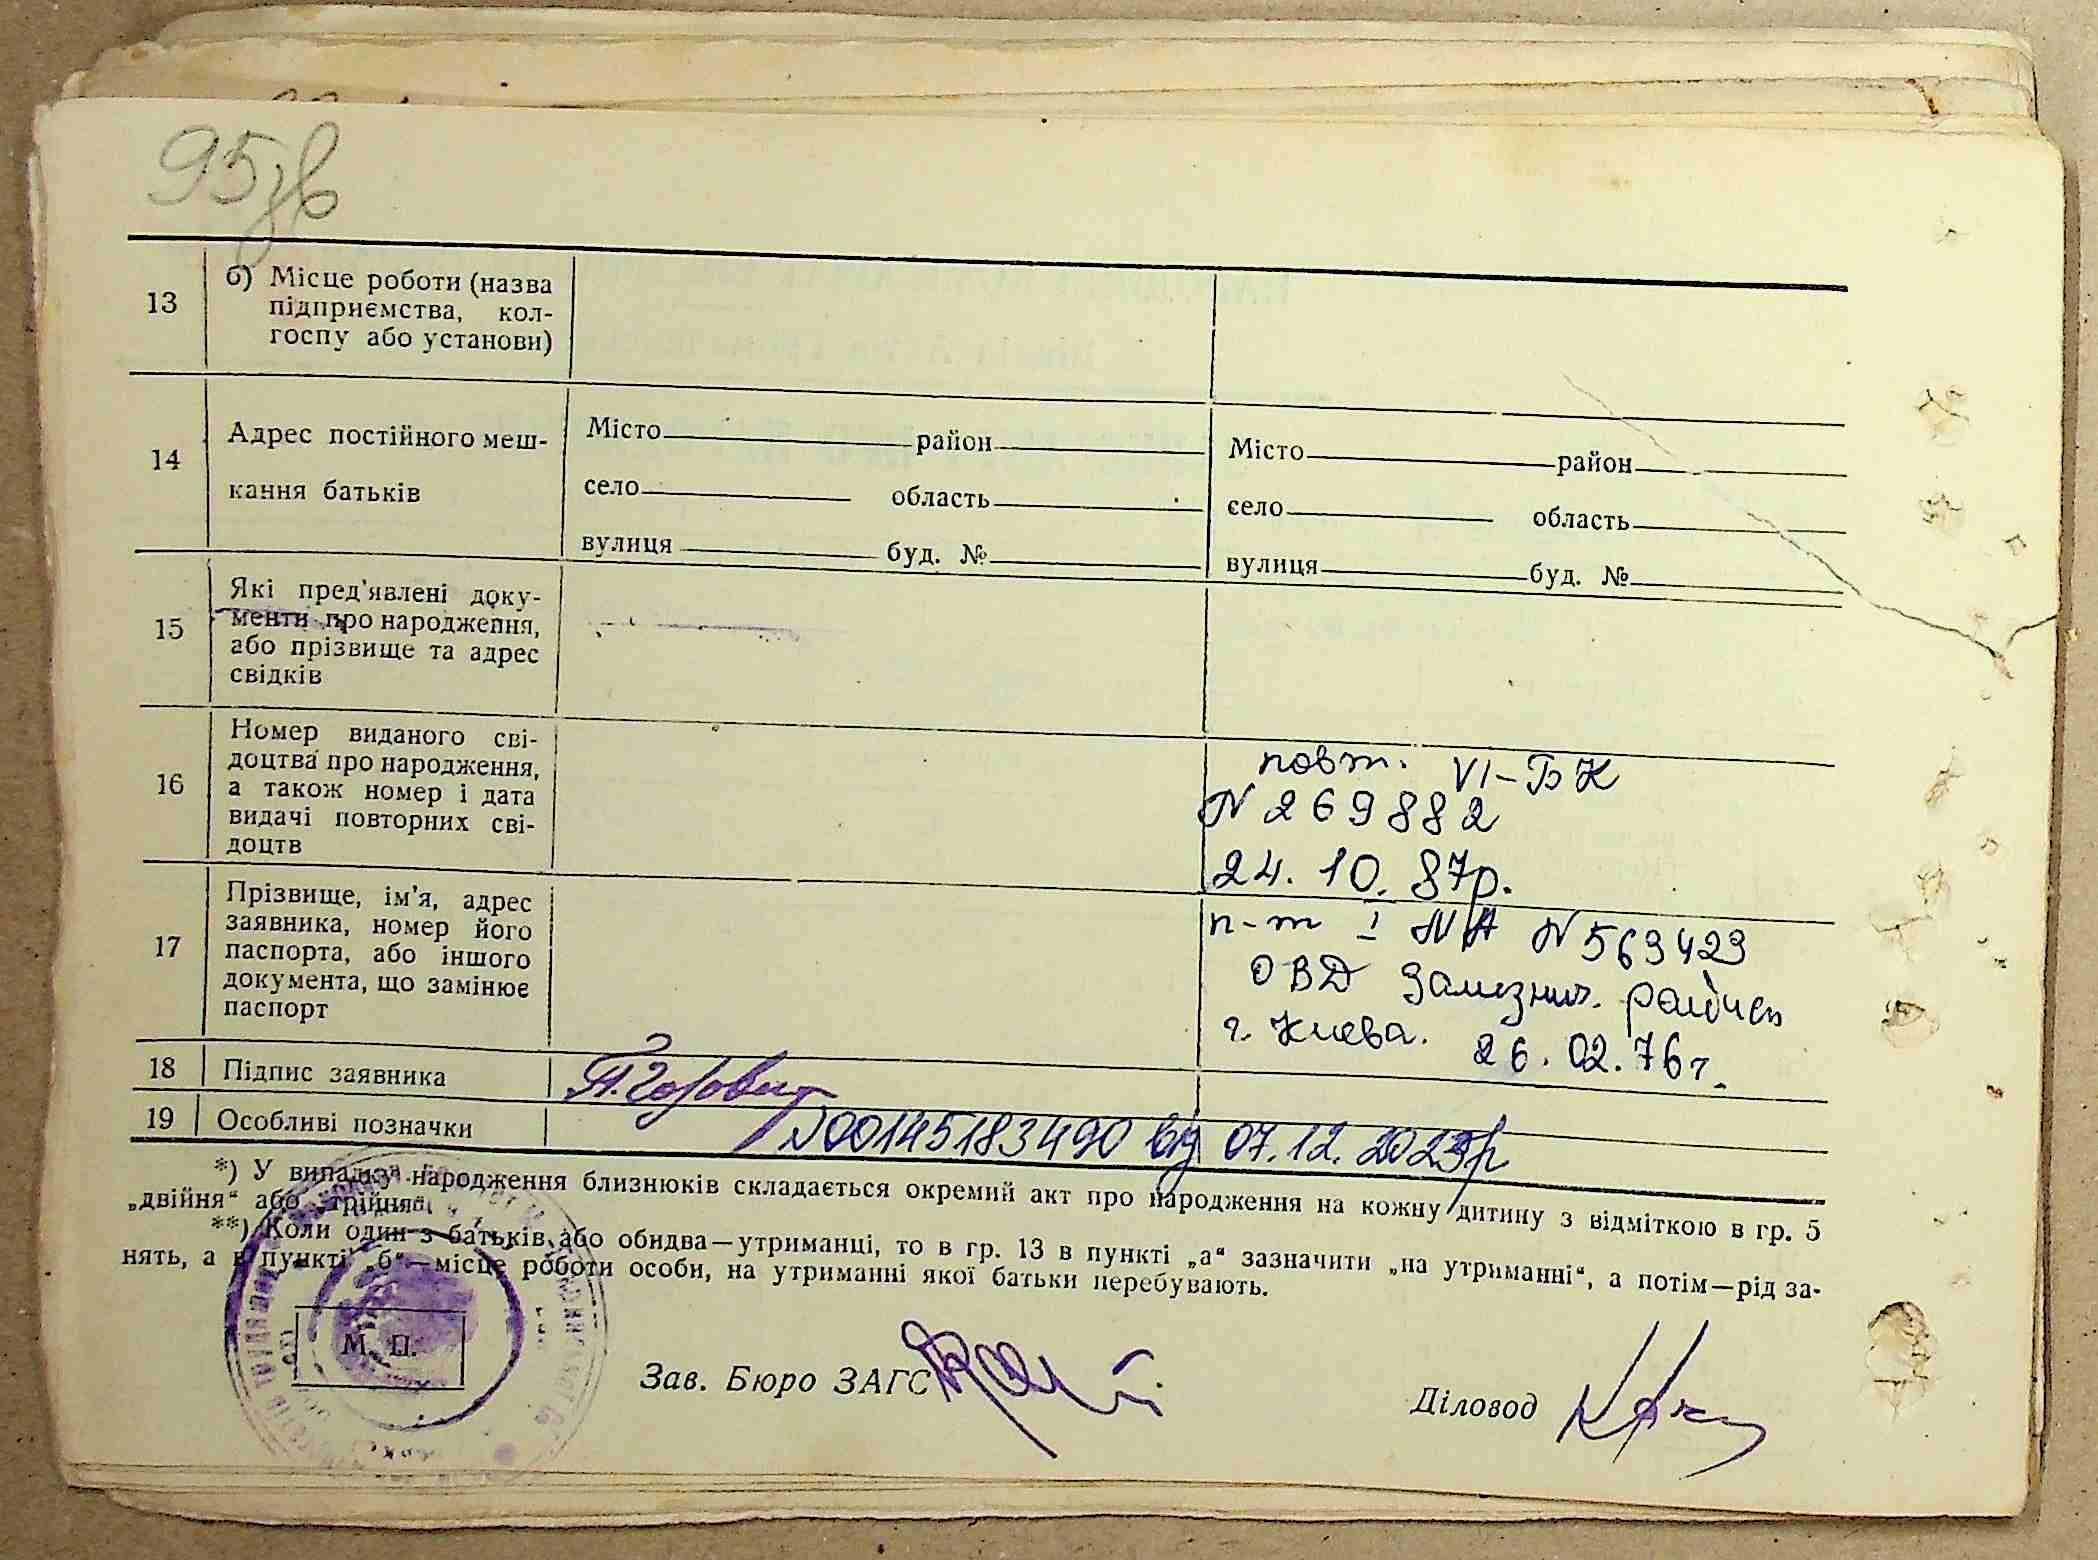 95зв
13
б) Місце роботи (назва
підприємства, кол-
госпу або установи)
14
Адрес постійного меш-
кання батьків
Місто район
село область
вулиця буд. №
Місто район
село область
вулиця буд. №
15
Які пред'явлені доку-
менти про народження,
або прізвище та адрес
свідків
16
Номер виданого сві-
доцтва про народження,
а також номер і дата
видачі повторних сві-
доцтв
повт. VI-БК
N 269882
24. 10. 87р.
17
Прізвище, ім'я, адрес
заявника, номер його
паспорта, або іншого
документа, що замінює
паспорт
п-т I N 563423
ОВД Залізнич.
г. Киева. 26. 02. 76г.
18
Підпис заявника
19
Особливі позначки
00145183490 від 07.12.2023р
*) У випадку народження близнюків складається окремий акт про народження на кожну дитину з відміткою в гр. 5
„двійня“ або „трійня“.
**) Коли один з батьків або обидва—утриманці, то в гр. 13 в пункті „а“ зазначити „на утриманні“, а потім—рід за-
нять, а в пункті „б“—місце роботи особи, на утриманні якої батьки перебувають.
М. П.
Зав. Бюро ЗАГС
Діловод